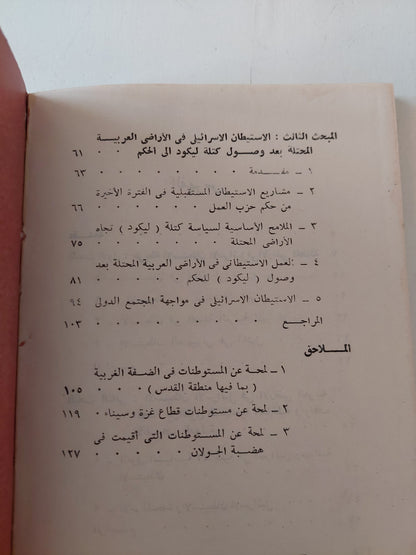 المبحث الثالث : الاستيطان الاسرائيلى فى الأراضى العربية
المحتلة بعد وصول كتلة ليكود الى الحكم ٠ ٠ ٦١
١ – مقدمة ٠ ٠ ٠ ٠ ٠ ٠ ٠ ٦٣
٢ – مشاريع الاستيطان المستقبلية فى الفترة الأخيرة
من حكم حزب العمل ٠ ٠ ٠ ٠ ٠ ٦٦
٣ – الملامح الأساسية لسياسة كتلة ( ليكود ) تجاه
الأراضى المحتلة ٠ ٠ ٠ ٠ ٠ ٠ ٧٥
٤ – العمل الاستيطانى فى الأراضى العربية المحتلة بعد
وصول ( ليكود ) للحكم ٠ ٠ ٠ ٠ ٨١
٥ – الاستيطان الاسرائيلى فى مواجهة المجتمع الدولى ٩٤
المراجع ٠ ٠ ٠ ٠ ٠ ٠ ٠ ٠ ١٠٣
الملاحق
١ – لمحة عن المستوطنات فى الضفة الغربية
( بما فيها منطقة القدس ) ٠ ٠ ٠ ١٠٥
٢ – لمحة عن مستوطنات قطاع غزة وسيناء ٠ ١١٩
٣ – لمحة عن المستوطنات التى أقيمت فى
هضبة الجولان ٠ ٠ ٠ ٠ ٠ ١٢٧